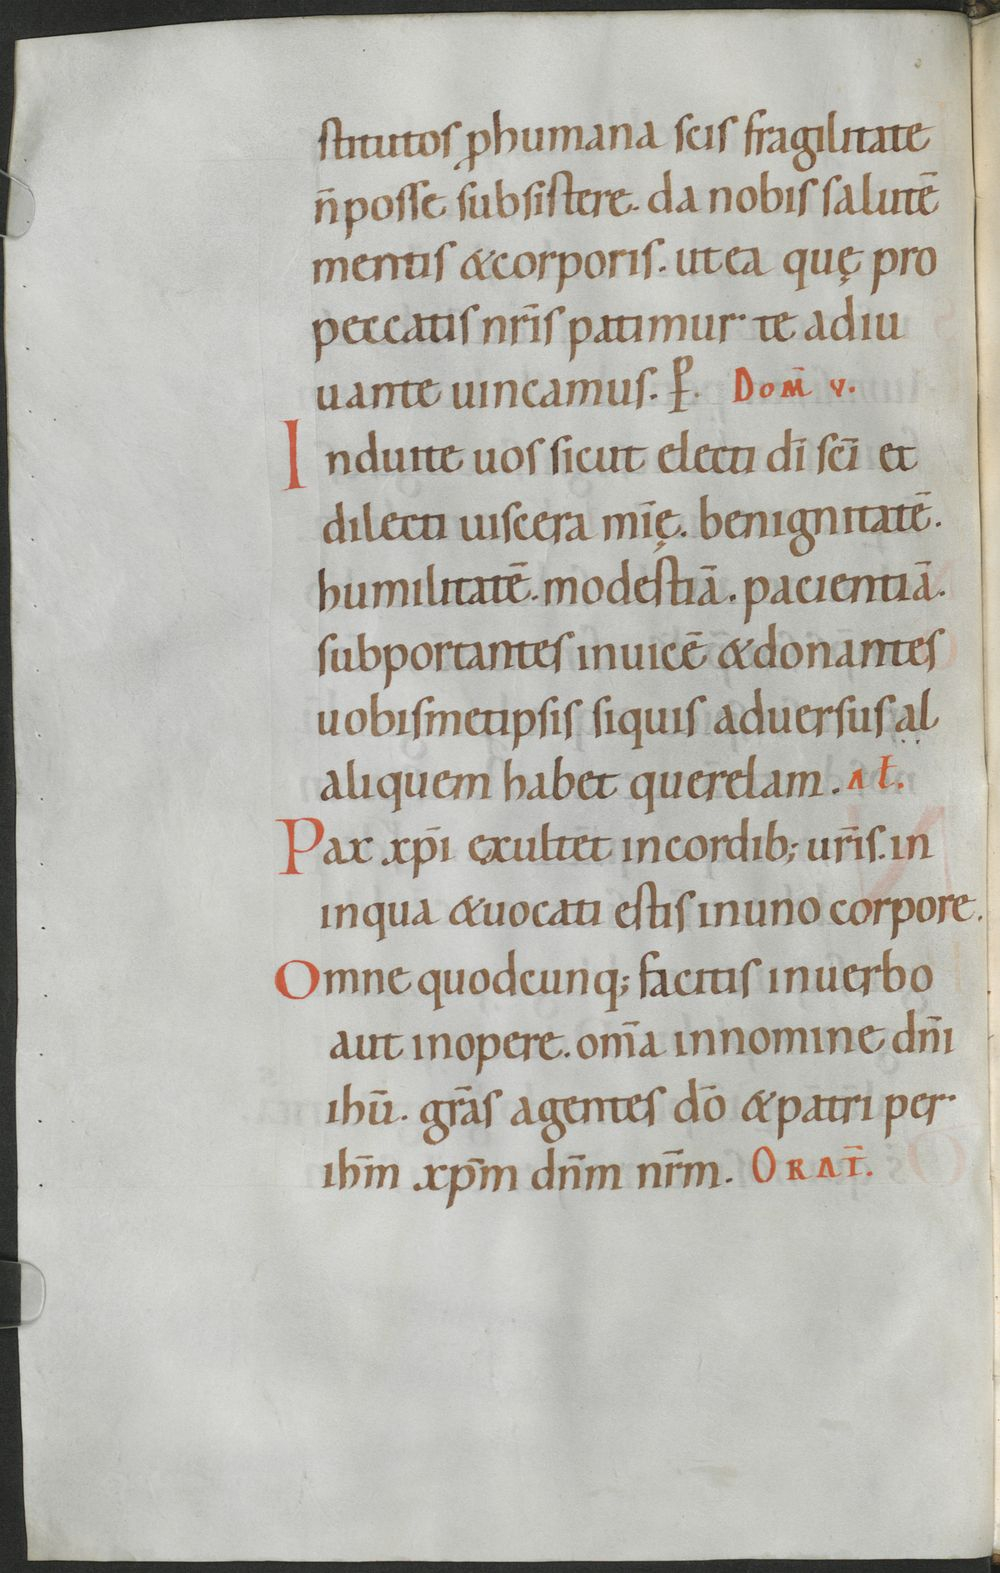 stitutos ꝓhumana scis fragilitate
n̄posse subsistere. da nobis salutē
mentis &corporis. utea quę pro
peccatis nr̄is patimur te adiu
uante uincamus. P̲. Dom̄ v.
Induite uos sicut electi dī scī et
dilecti uiscera mīę. benignitatē.
humilitatē. modestiā. pacientiā.
subportantes inuicē &donantes
uobismetipsis siquis aduersus al
aliquem habet querelam. Aƚ.
Pax xp̄i exultet incordib; ur̄is. in
inqua &uocati estis inuno corpore.
Omne quodcunq; facitis inuerbo
aut inopere. om̄a innomine dn̄i
ihū. gr̄as agentes dō &patri per
ihm̄ xp̄m dn̄m nr̄m. Orat̄.